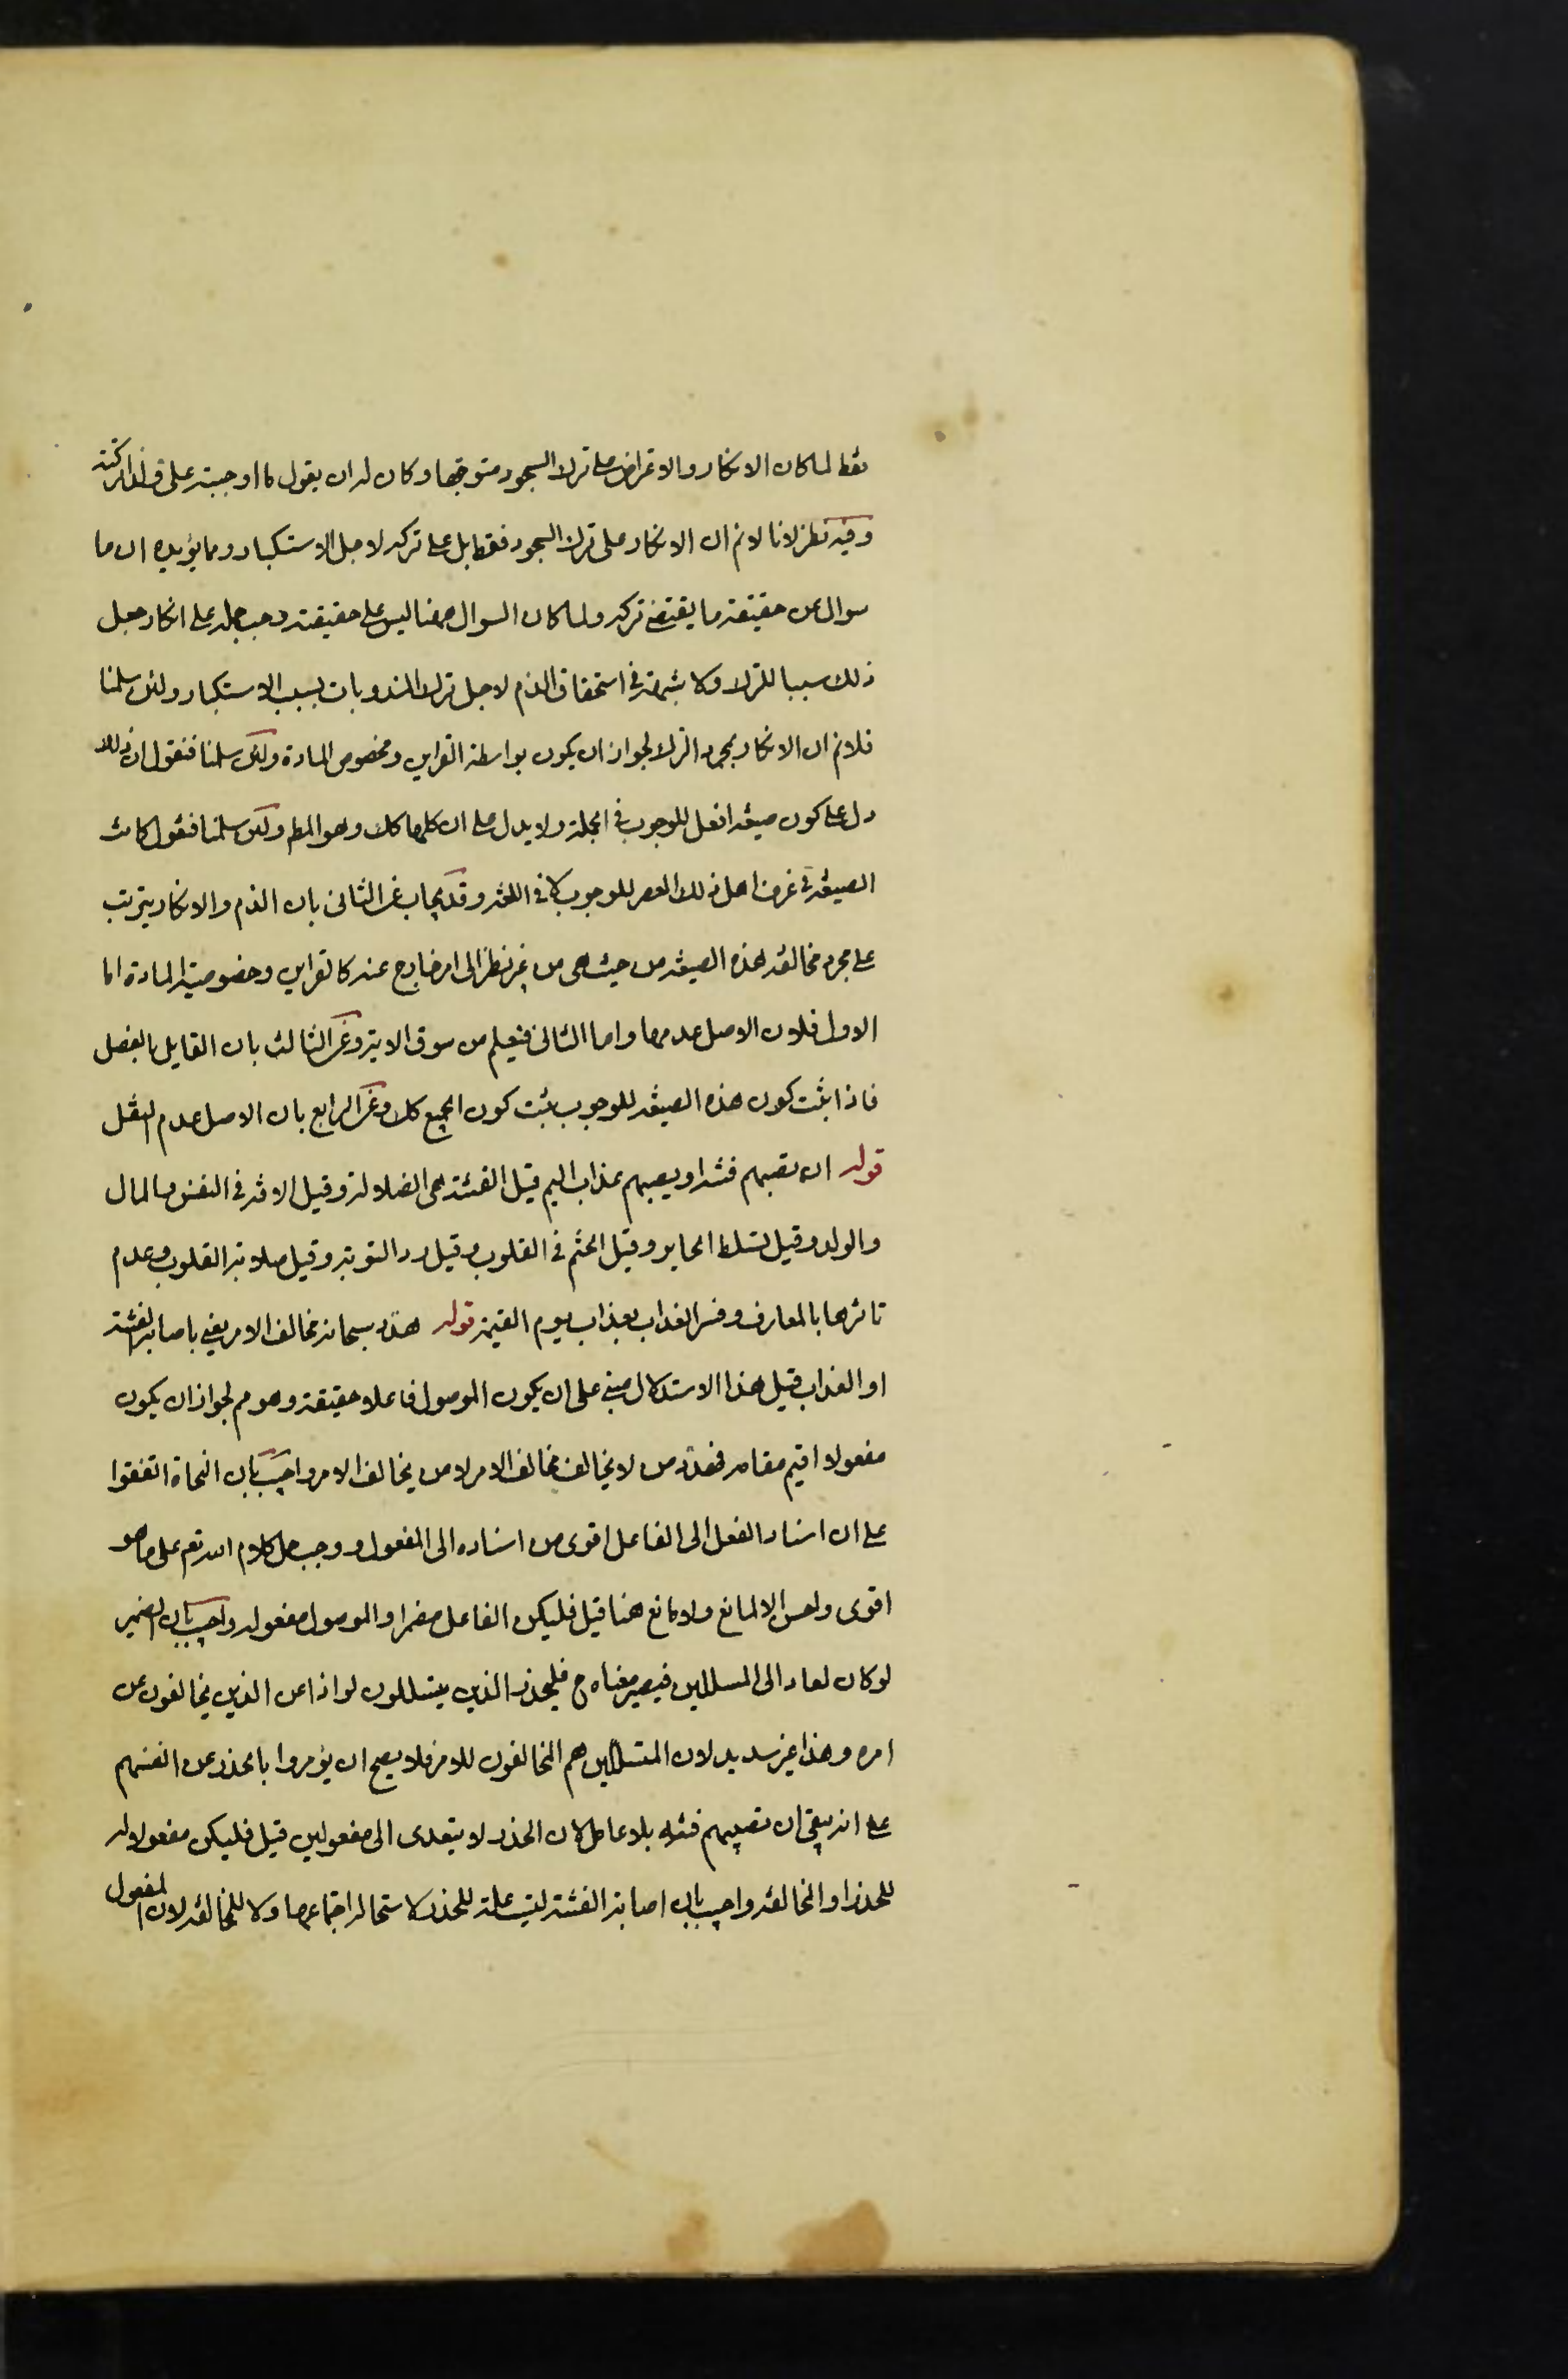 فقط لما كان الانكار والاعتراض على ترك السجود متوجها وكان له ان يقول ما اوجبته على فلذا تركته
وفيه نظر لانا لانم ان الانكار على ترك السجود فقط بل على تركه لاجل الاستكبار ومما يؤيده ان ما
سوال عن حقيقة ما يقتضي تركه ولما كان السوال ههنا ليس على حقيقته وجب حمله على انكار جعل
ذلك سببا للترك ولا شبهة في استحقاق الذم لاجل ترك المندوبات بسبب الاستكبار ولئن سلمنا
فلانم ان الانكار بمجرد الترك لجواز ان يكون بواسطة القراين وخصوص المادة ولئن سلمنا فنقول ان ذلك
دل على كون صيغه افعل للوجوب في الجملة ولا يدل على ان كلها كك وهو المط ولئن سلمنا فنقول كانت
الصيغة في عرف اهل ذلك العصر للوجوب لا في اللغة وقد يجاب عن الثاني بان الذم والانكار يترتب
على مجرد مخالفه هذه الصيغه من حيث هي من غير نظر الى امر خارج عنه كالقراين وخصوصية المادة اما
الاول فلان الاصل عدمها واما الثاني فيعلم من سوق الاية وعن الثالث بان القايل بالفصل
فاذا ثبت كون هذه الصيغه للوجوب ثبت كون الجميع كك وعن الرابع بان الاصل عدم النقل
قوله ان تصيبهم فتنه او يصيبهم عذاب اليم قيل الفتنة هي الضلالة وقيل الافة في النفس والمال
والولد وقيل تسلط الجاير وقيل الختم في القلوب وقيل رد التوبة وقيل صلابة القلوب وعدم
تاثرها بالمعارف وفسر العذاب بعذاب يوم القيمة قوله هدد سبحانه مخالف الامر يعني باصابة الفتنة
او العذاب قيل هذا الاستدلال مبني على ان يكون الموصول فاعلا حقيقة وهو مم لجواز ان يكون
مفعولا اقيم مقامه فهدد من لا يخالف مخالف الامر لا من يخالف الامر واجيب بان النحاة اتفقوا
على ان اسناد الفعل الى الفاعل اقوى من اسناده الى المفعول ووجب حمل كلام الله تعم على ما هو
اقوى واحسن الا لمانع ولا مانع هنا قيل فليكن الفاعل مضمرا والموصول مفعوله واجيب بان الضمير
لو كان لعاد الى المتسللين فيصير معناه ح فليحذر الذين يتسللون لواذا عن الذين يخالفون عن
امره وهذا غير سديد لان المتسللين هم المخالفون للامر فلا يصح ان يؤمروا بالحذر عن انفسهم
على انه يبقى ان تصيبهم فتنه بلا عامل لان الحذر لا يتعدى الى مفعولين قيل فليكن مفعولا له
للحذر او المخالفه واجيب بان اصابة الفتنة ليست علة للحذر لاستحالة اجتماعهما ولا للمخالفه لان المفعول